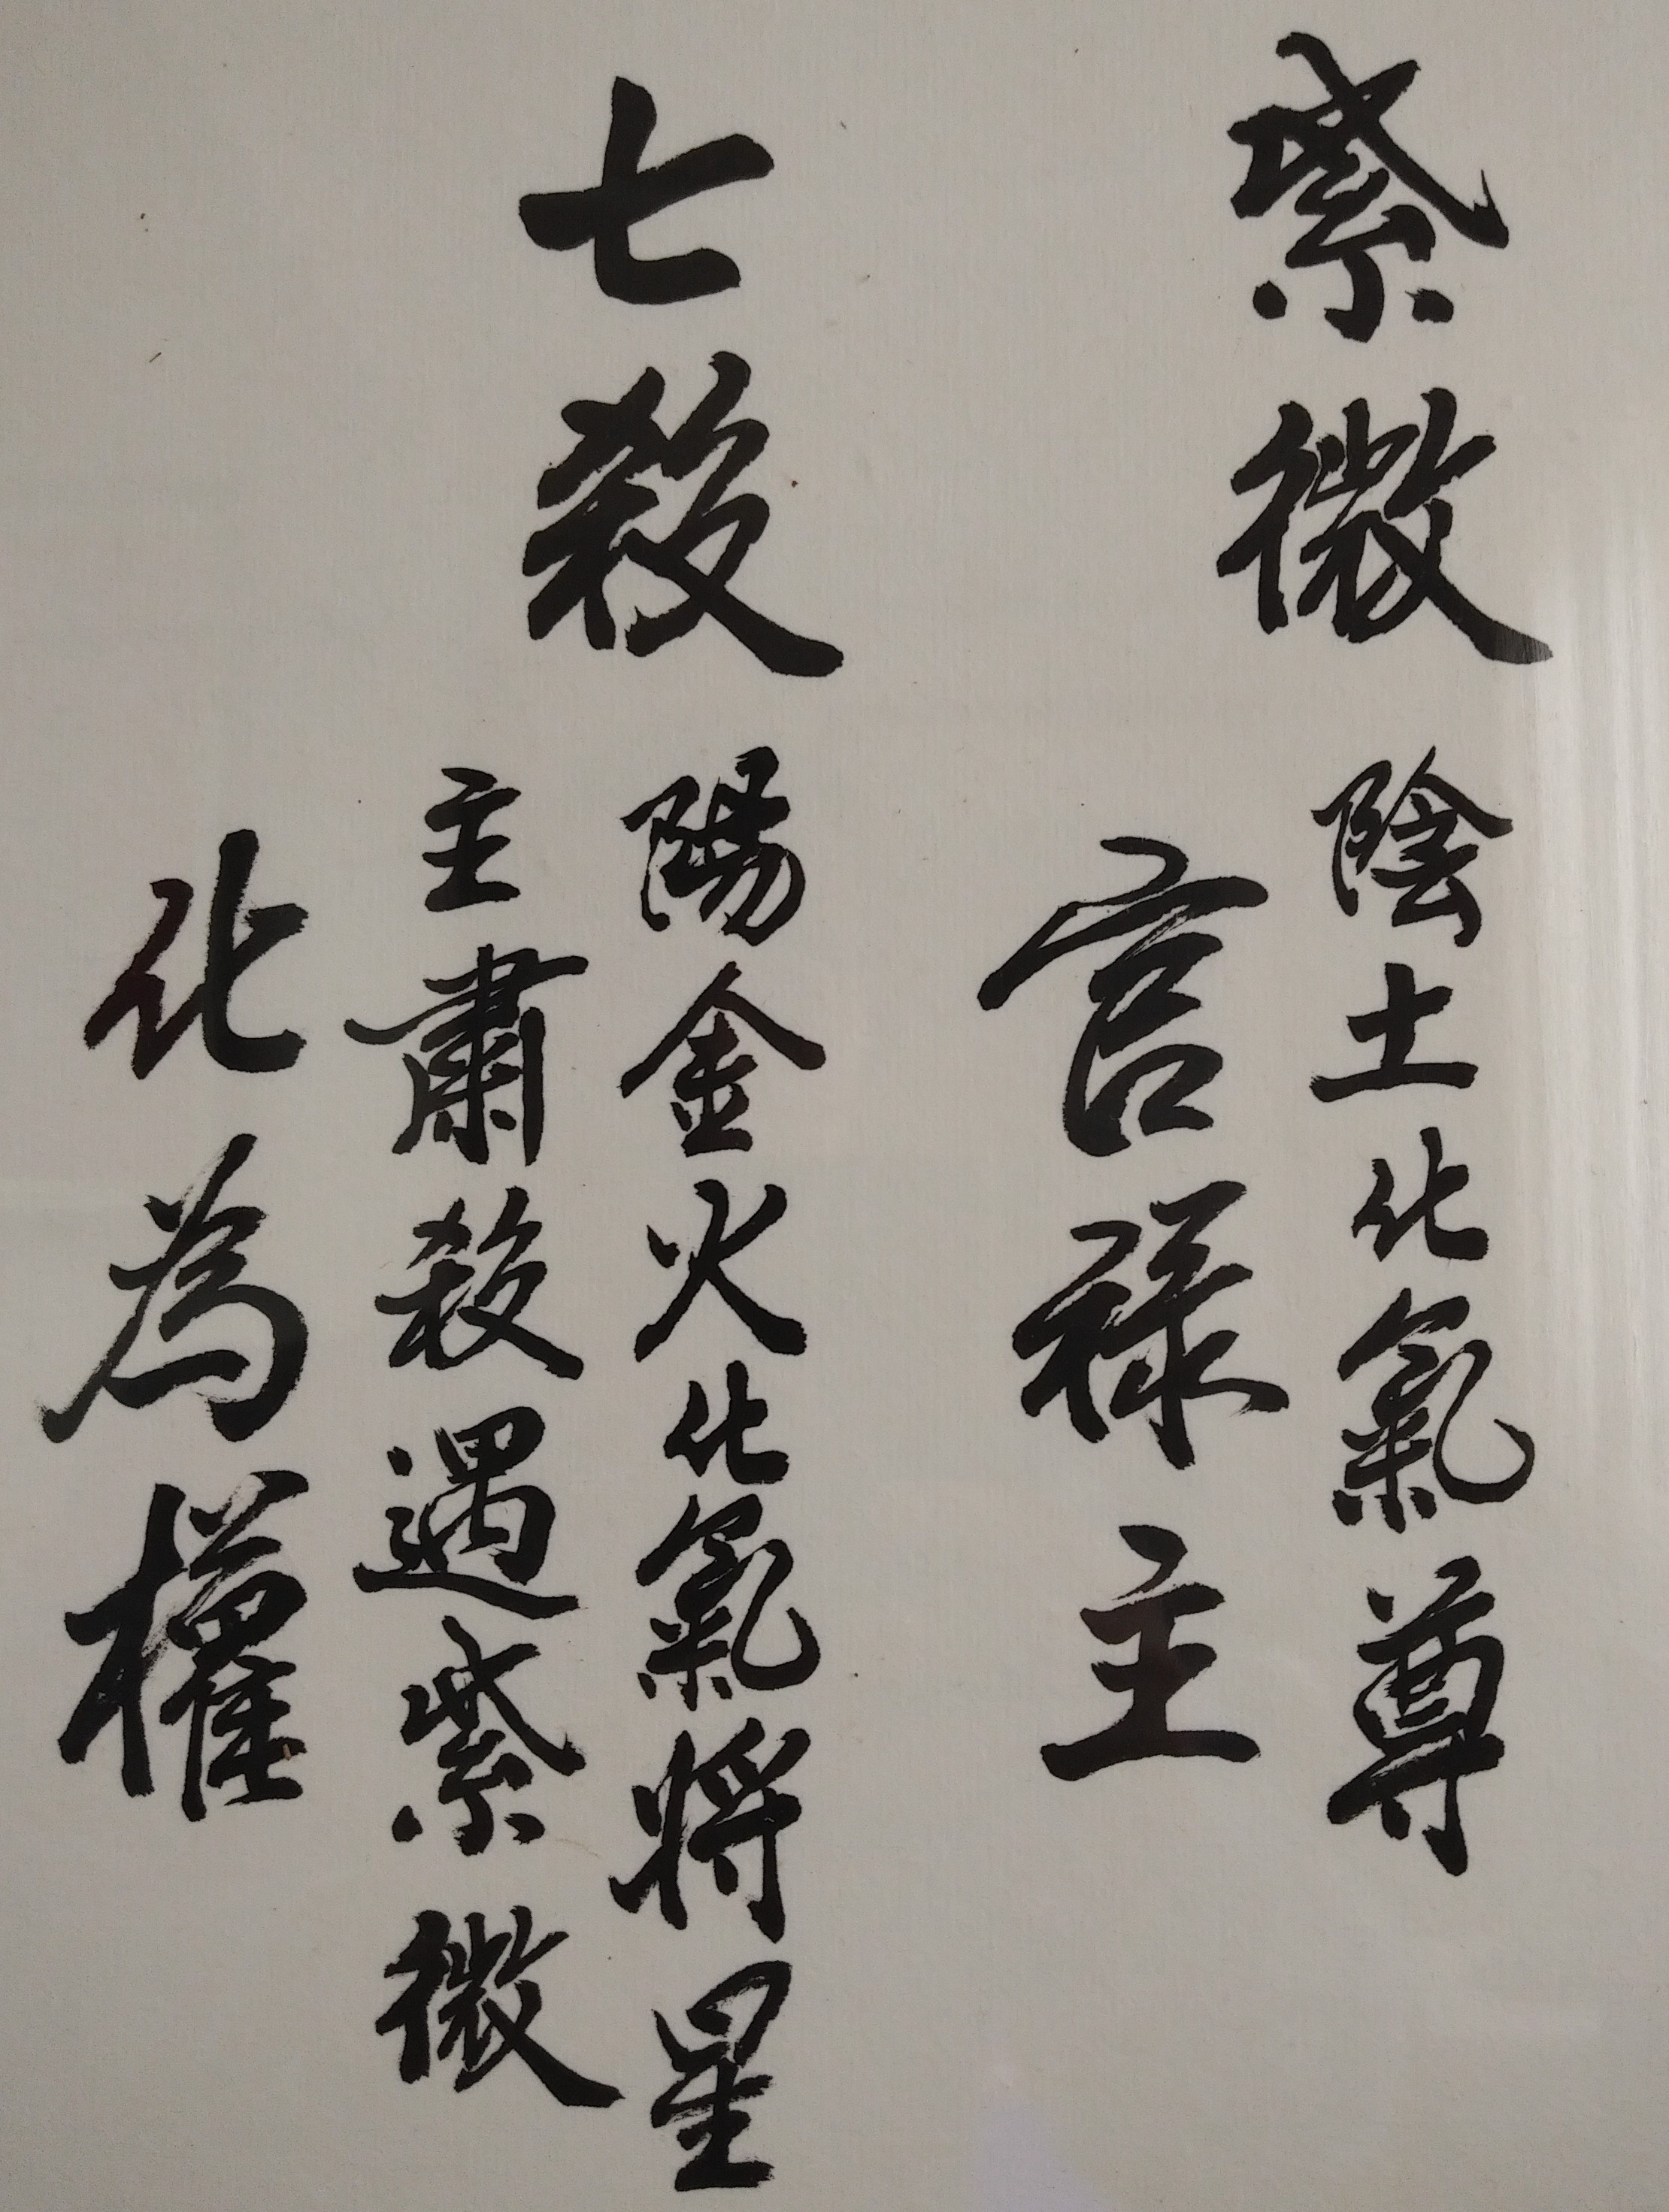 紫微
陰土化氣尊
官禄主
七殺
陽金火化氣將星
主肅殺遇紫微
化為權